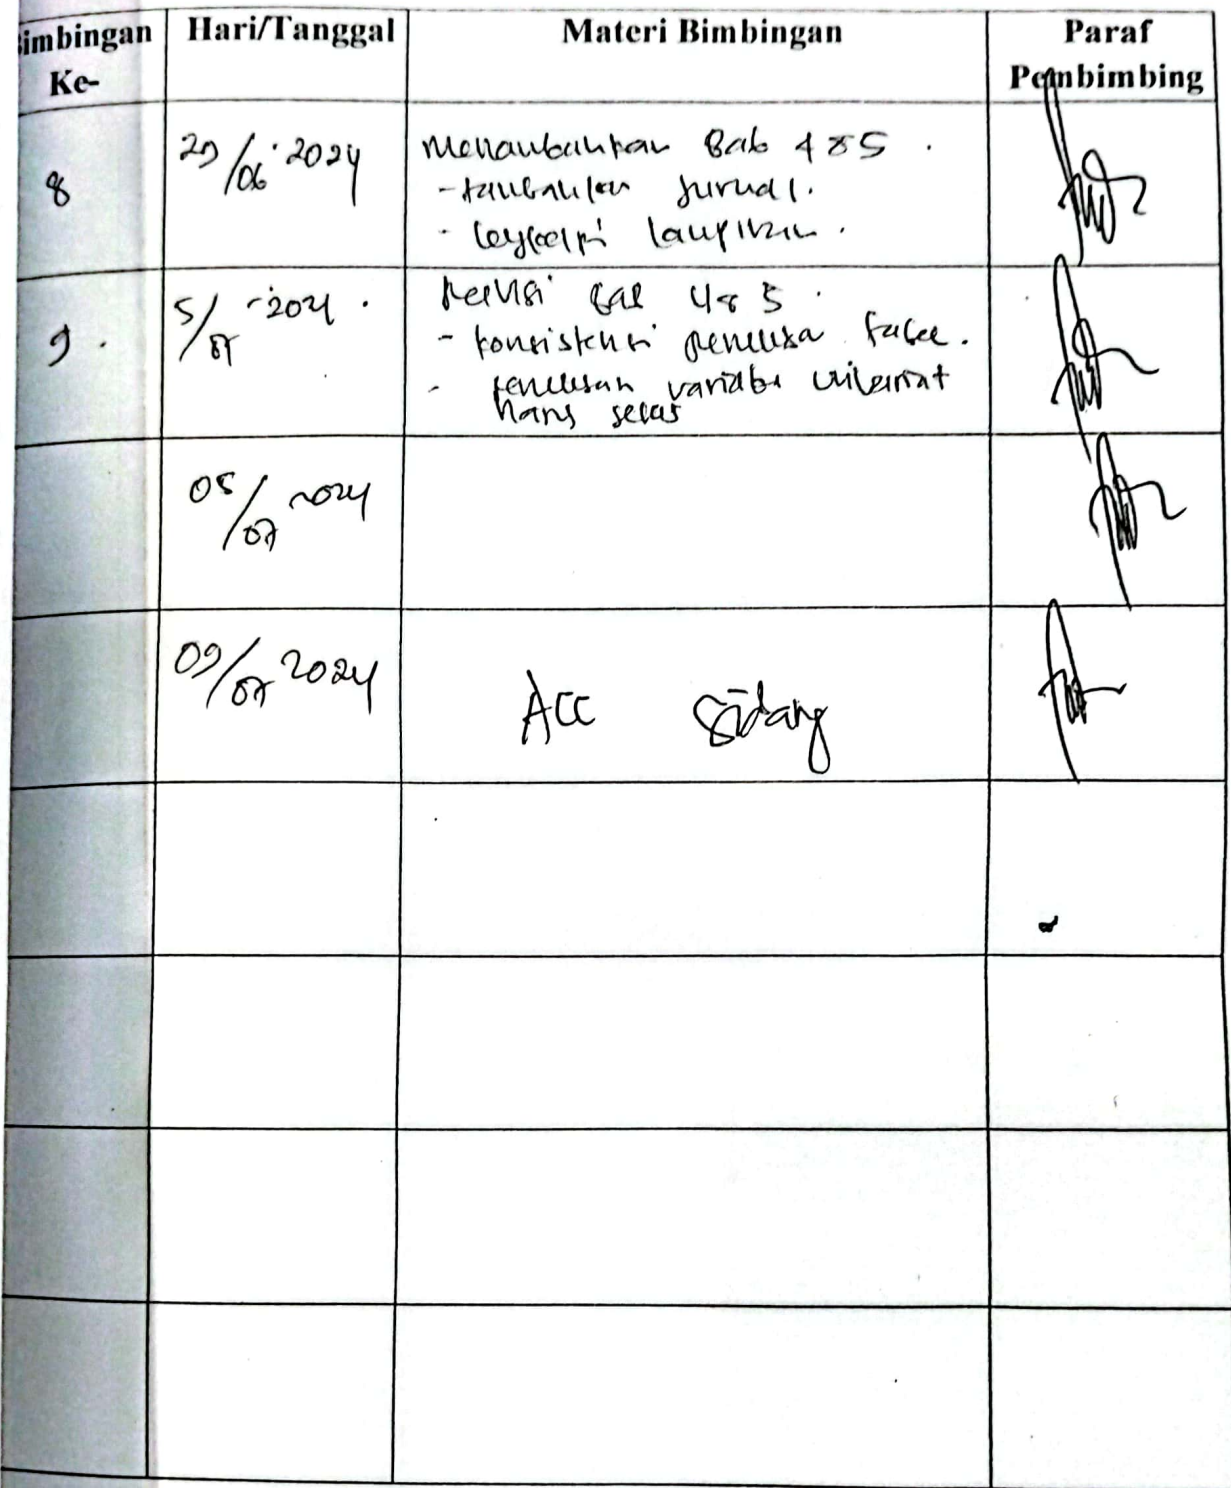 imbingan Ke-
Hari/Tanggal
Materi Bimbingan
Paraf Pembimbing
8
29/06 2024
Menambahkan Bab 4 & 5.
- tambahkan jurnal.
- lengkapi lampiran.
9.
5/07 - 2024.
Revisi Bab 4 & 5.
- konsistensi
- penulisan variabel
harus jelas
05/07 2024
09/07 2024
ACC Sidang